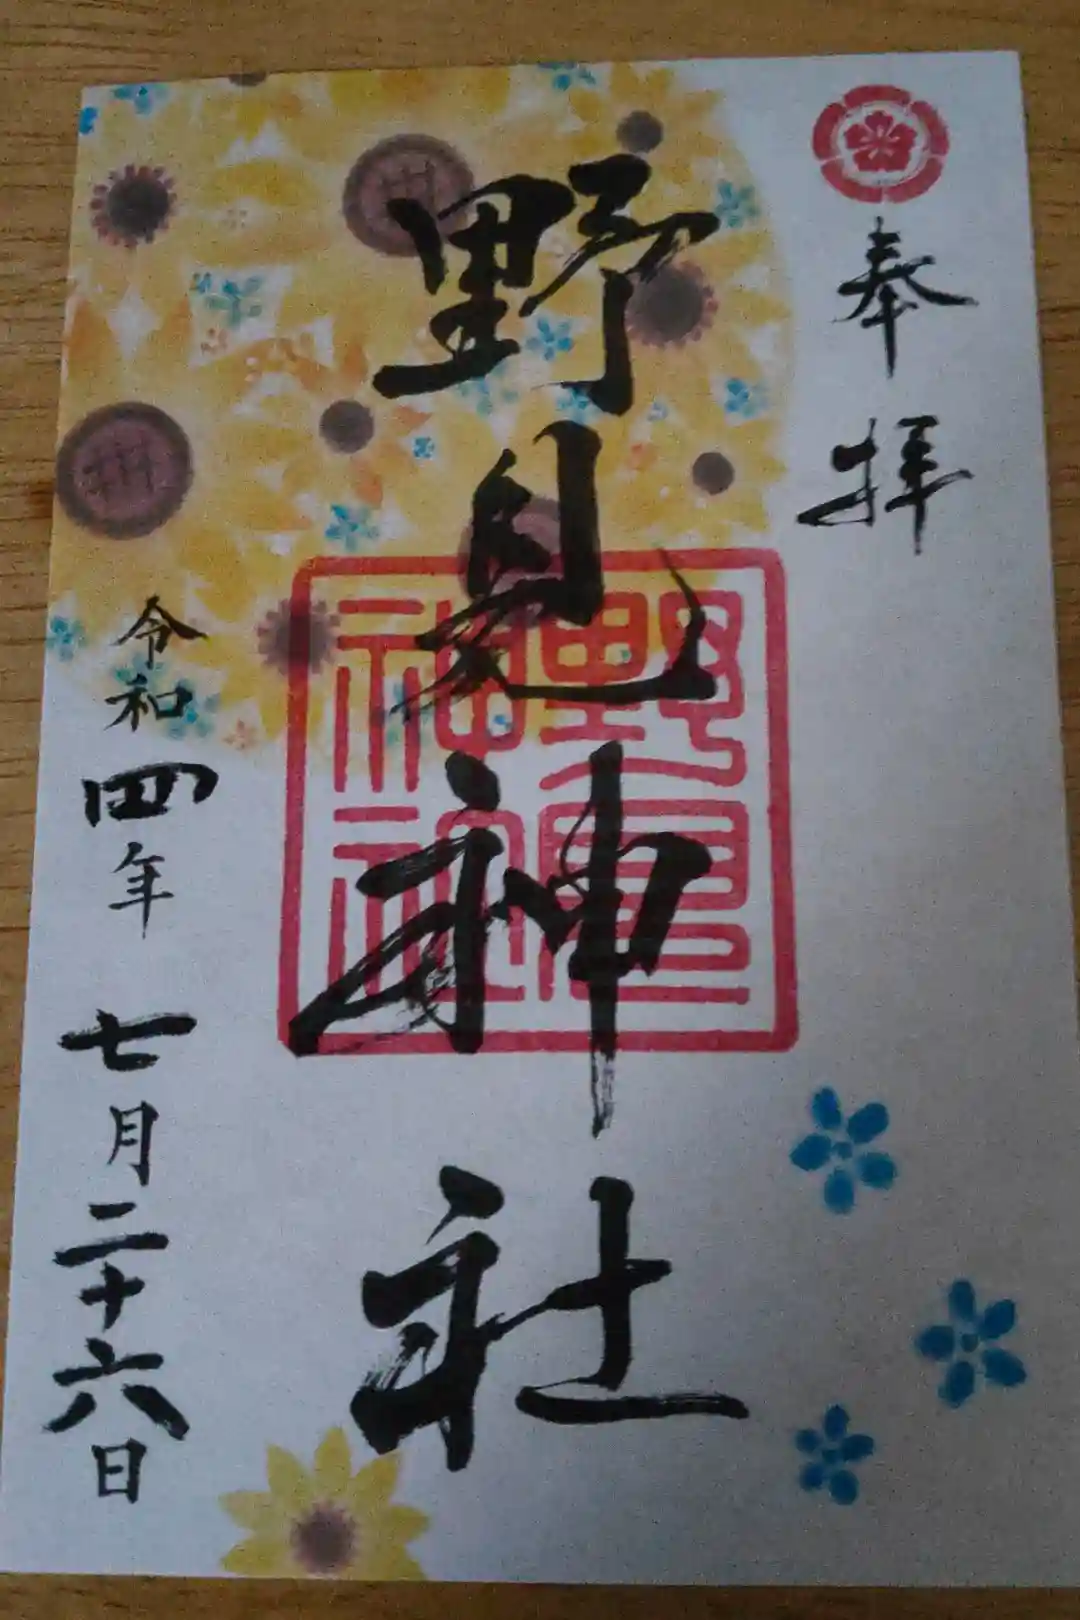 奉拝
野見神社
野見神社
令和四年七月二十六日